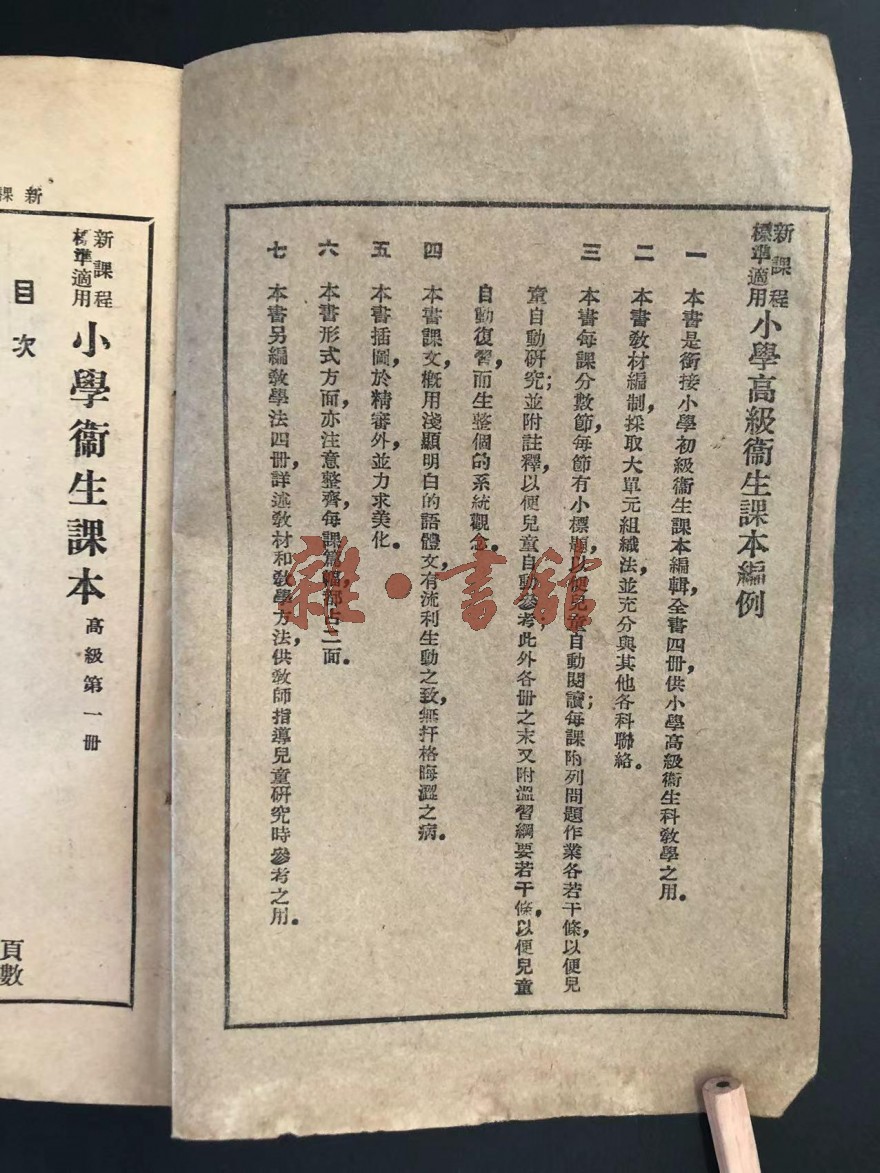 新課程標準適用小學高級衞生課本編例
一　本書是銜接小學初級衞生課本編輯，全書四冊，供小學高級衞生科敎學之用。
二　本書敎材編制，採取大單元組織法，並充分與其他各科聯絡。
三　本書每課分數節，每節有小標題，以便兒童自動閱讀；每課附列問題作業各若干條，以便兒
童自動研究；並附註釋，以便兒童自動參考；此外各冊之末，又附溫習綱要若干條，以便兒童
自動復習，而生整個的系統觀念。
四　本書課文，槪用淺顯明白的語體文，有流利生動之致，無扞格晦澀之病。
五　本書插圖，於精審外，並力求美化。
六　本書形式方面，亦注意整齊，每課篇幅，都占二面。
七　本書另編敎學法四冊，詳述敎材和敎學方法，供敎師指導兒童研究時參考之用。
新課
新課程標準適用小學衞生課本高級第一冊
目次
頁數
雜·書館